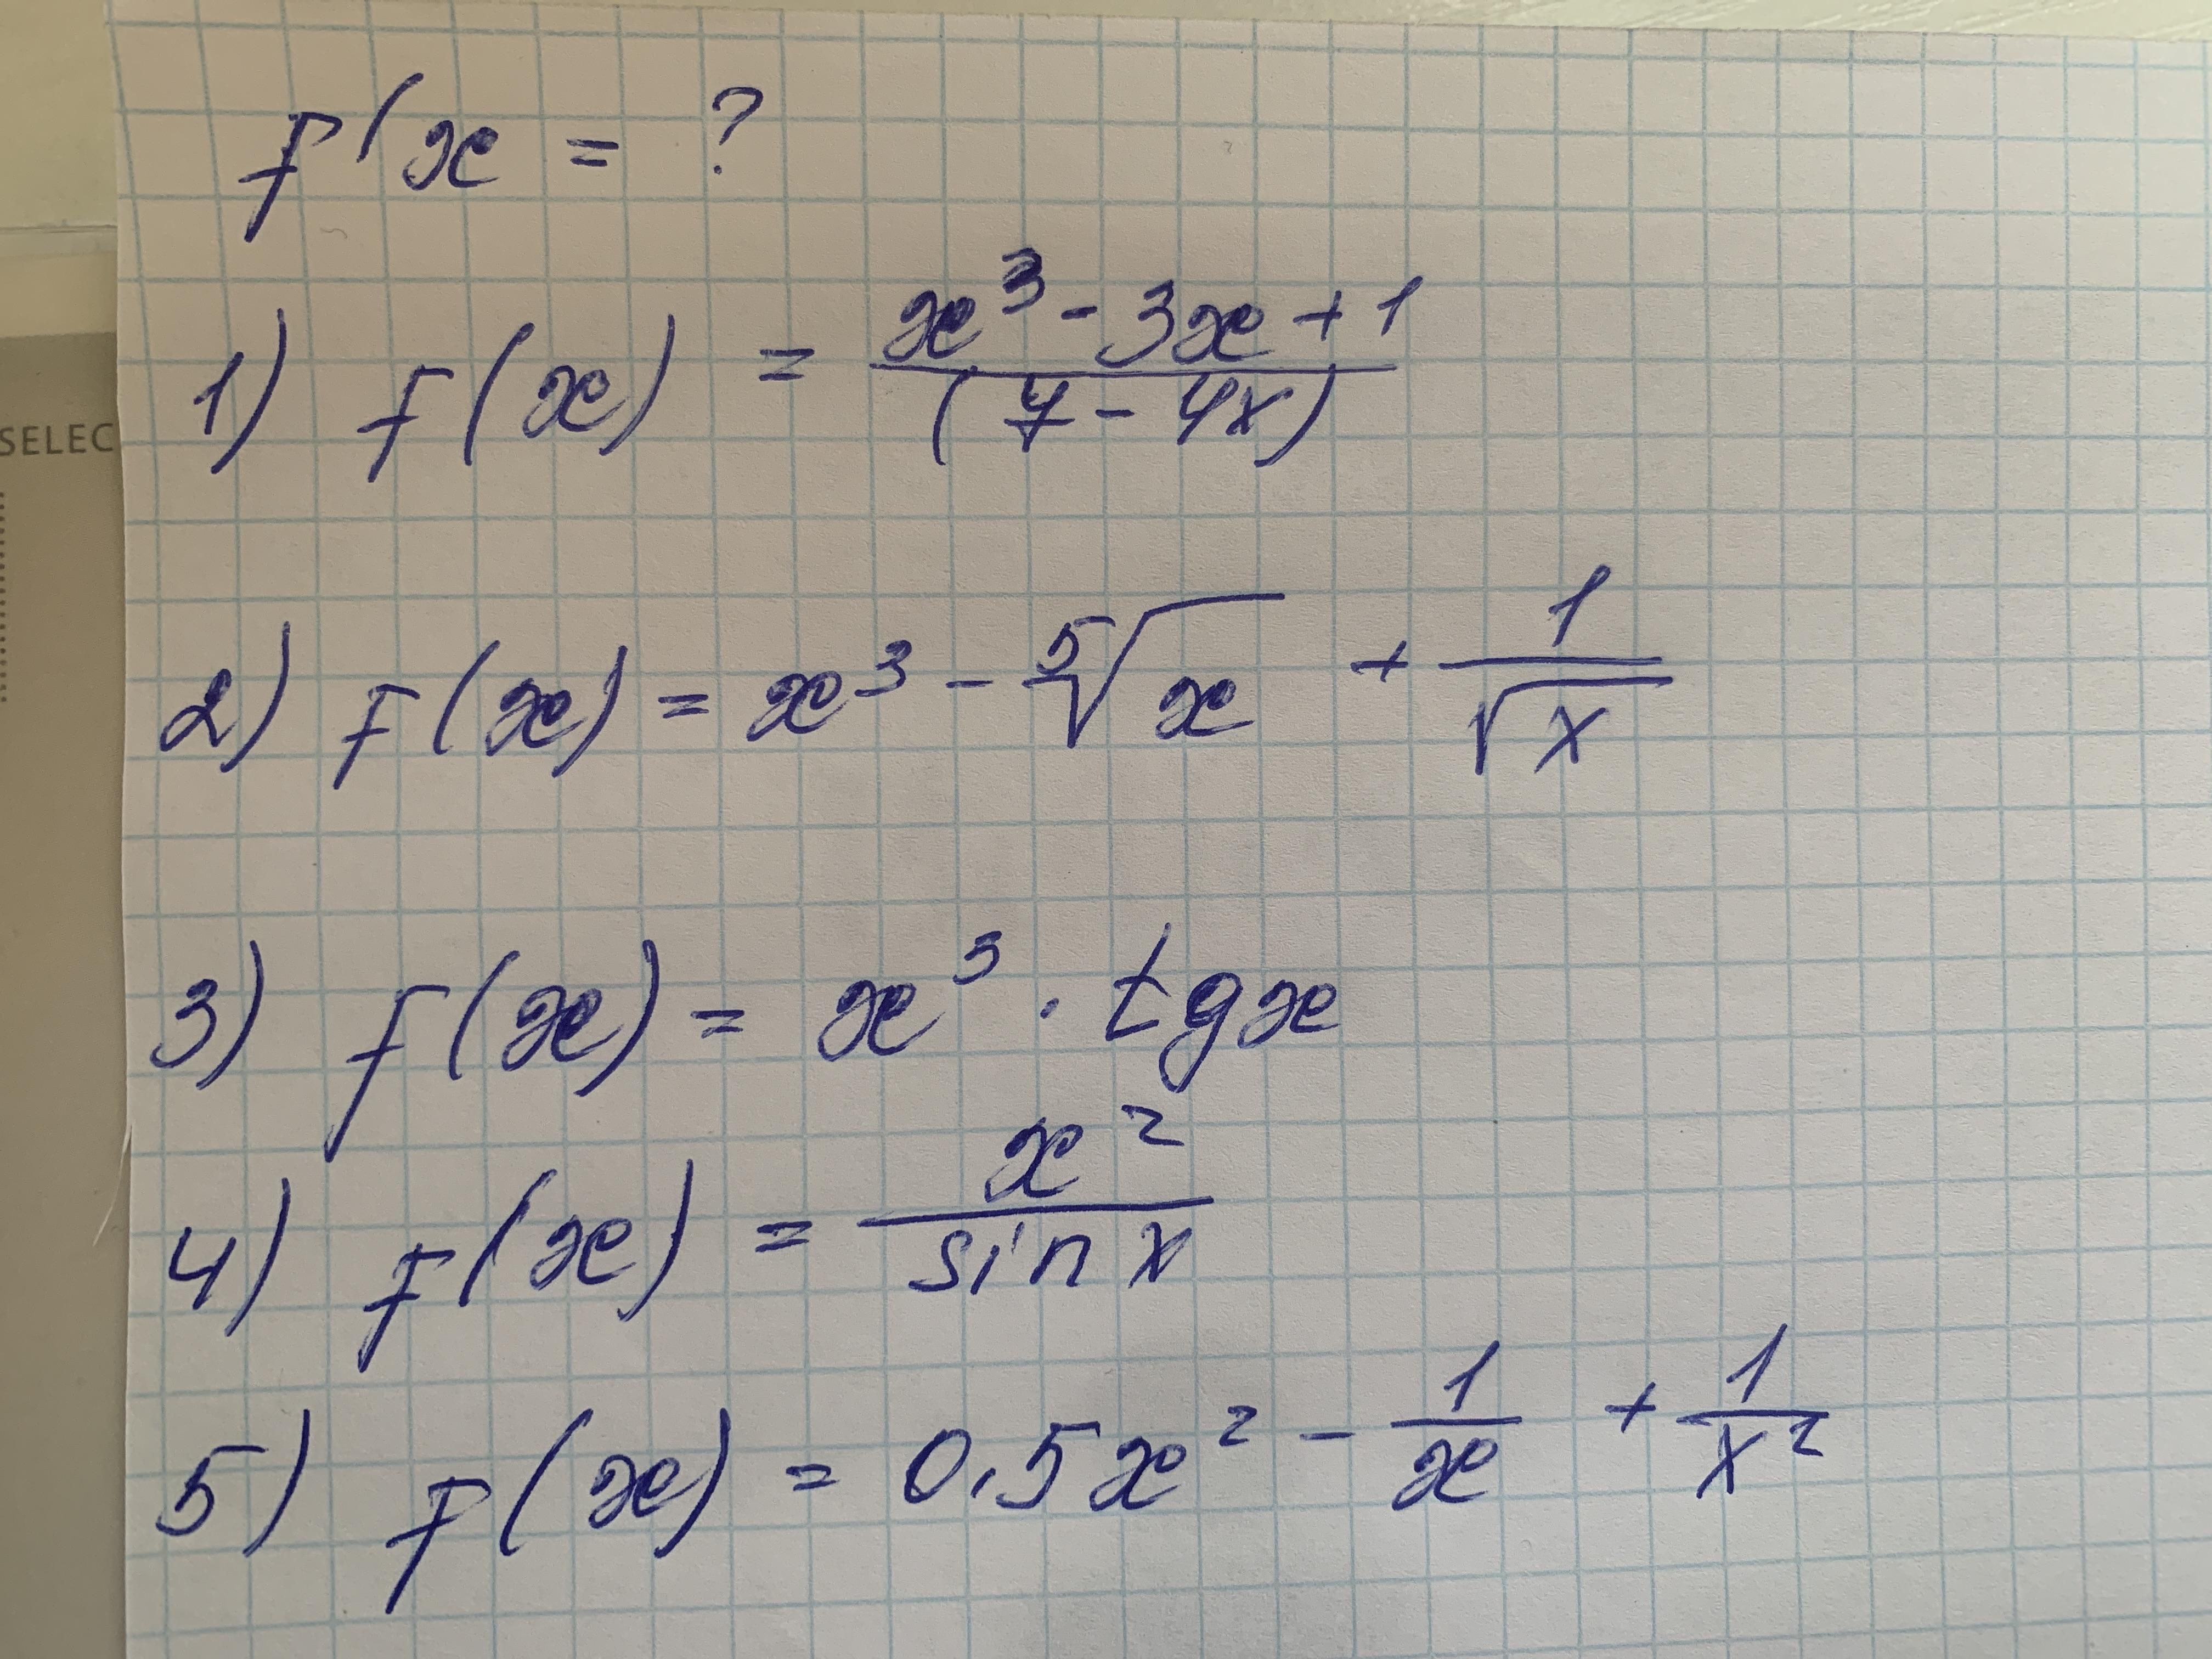 f'x = ?
SELEC
1) f(x) = \frac{x^3 - 3x + 1}{(7 - 4x)}
2) f(x) = x^3 - \sqrt[5]{x} + \frac{1}{\sqrt{x}}
3) f(x) = x^3 · tgx
4) f(x) = \frac{x^2}{sin x}
5) f(x) = 0,5x^2 - \frac{1}{x} + \frac{1}{x^2}